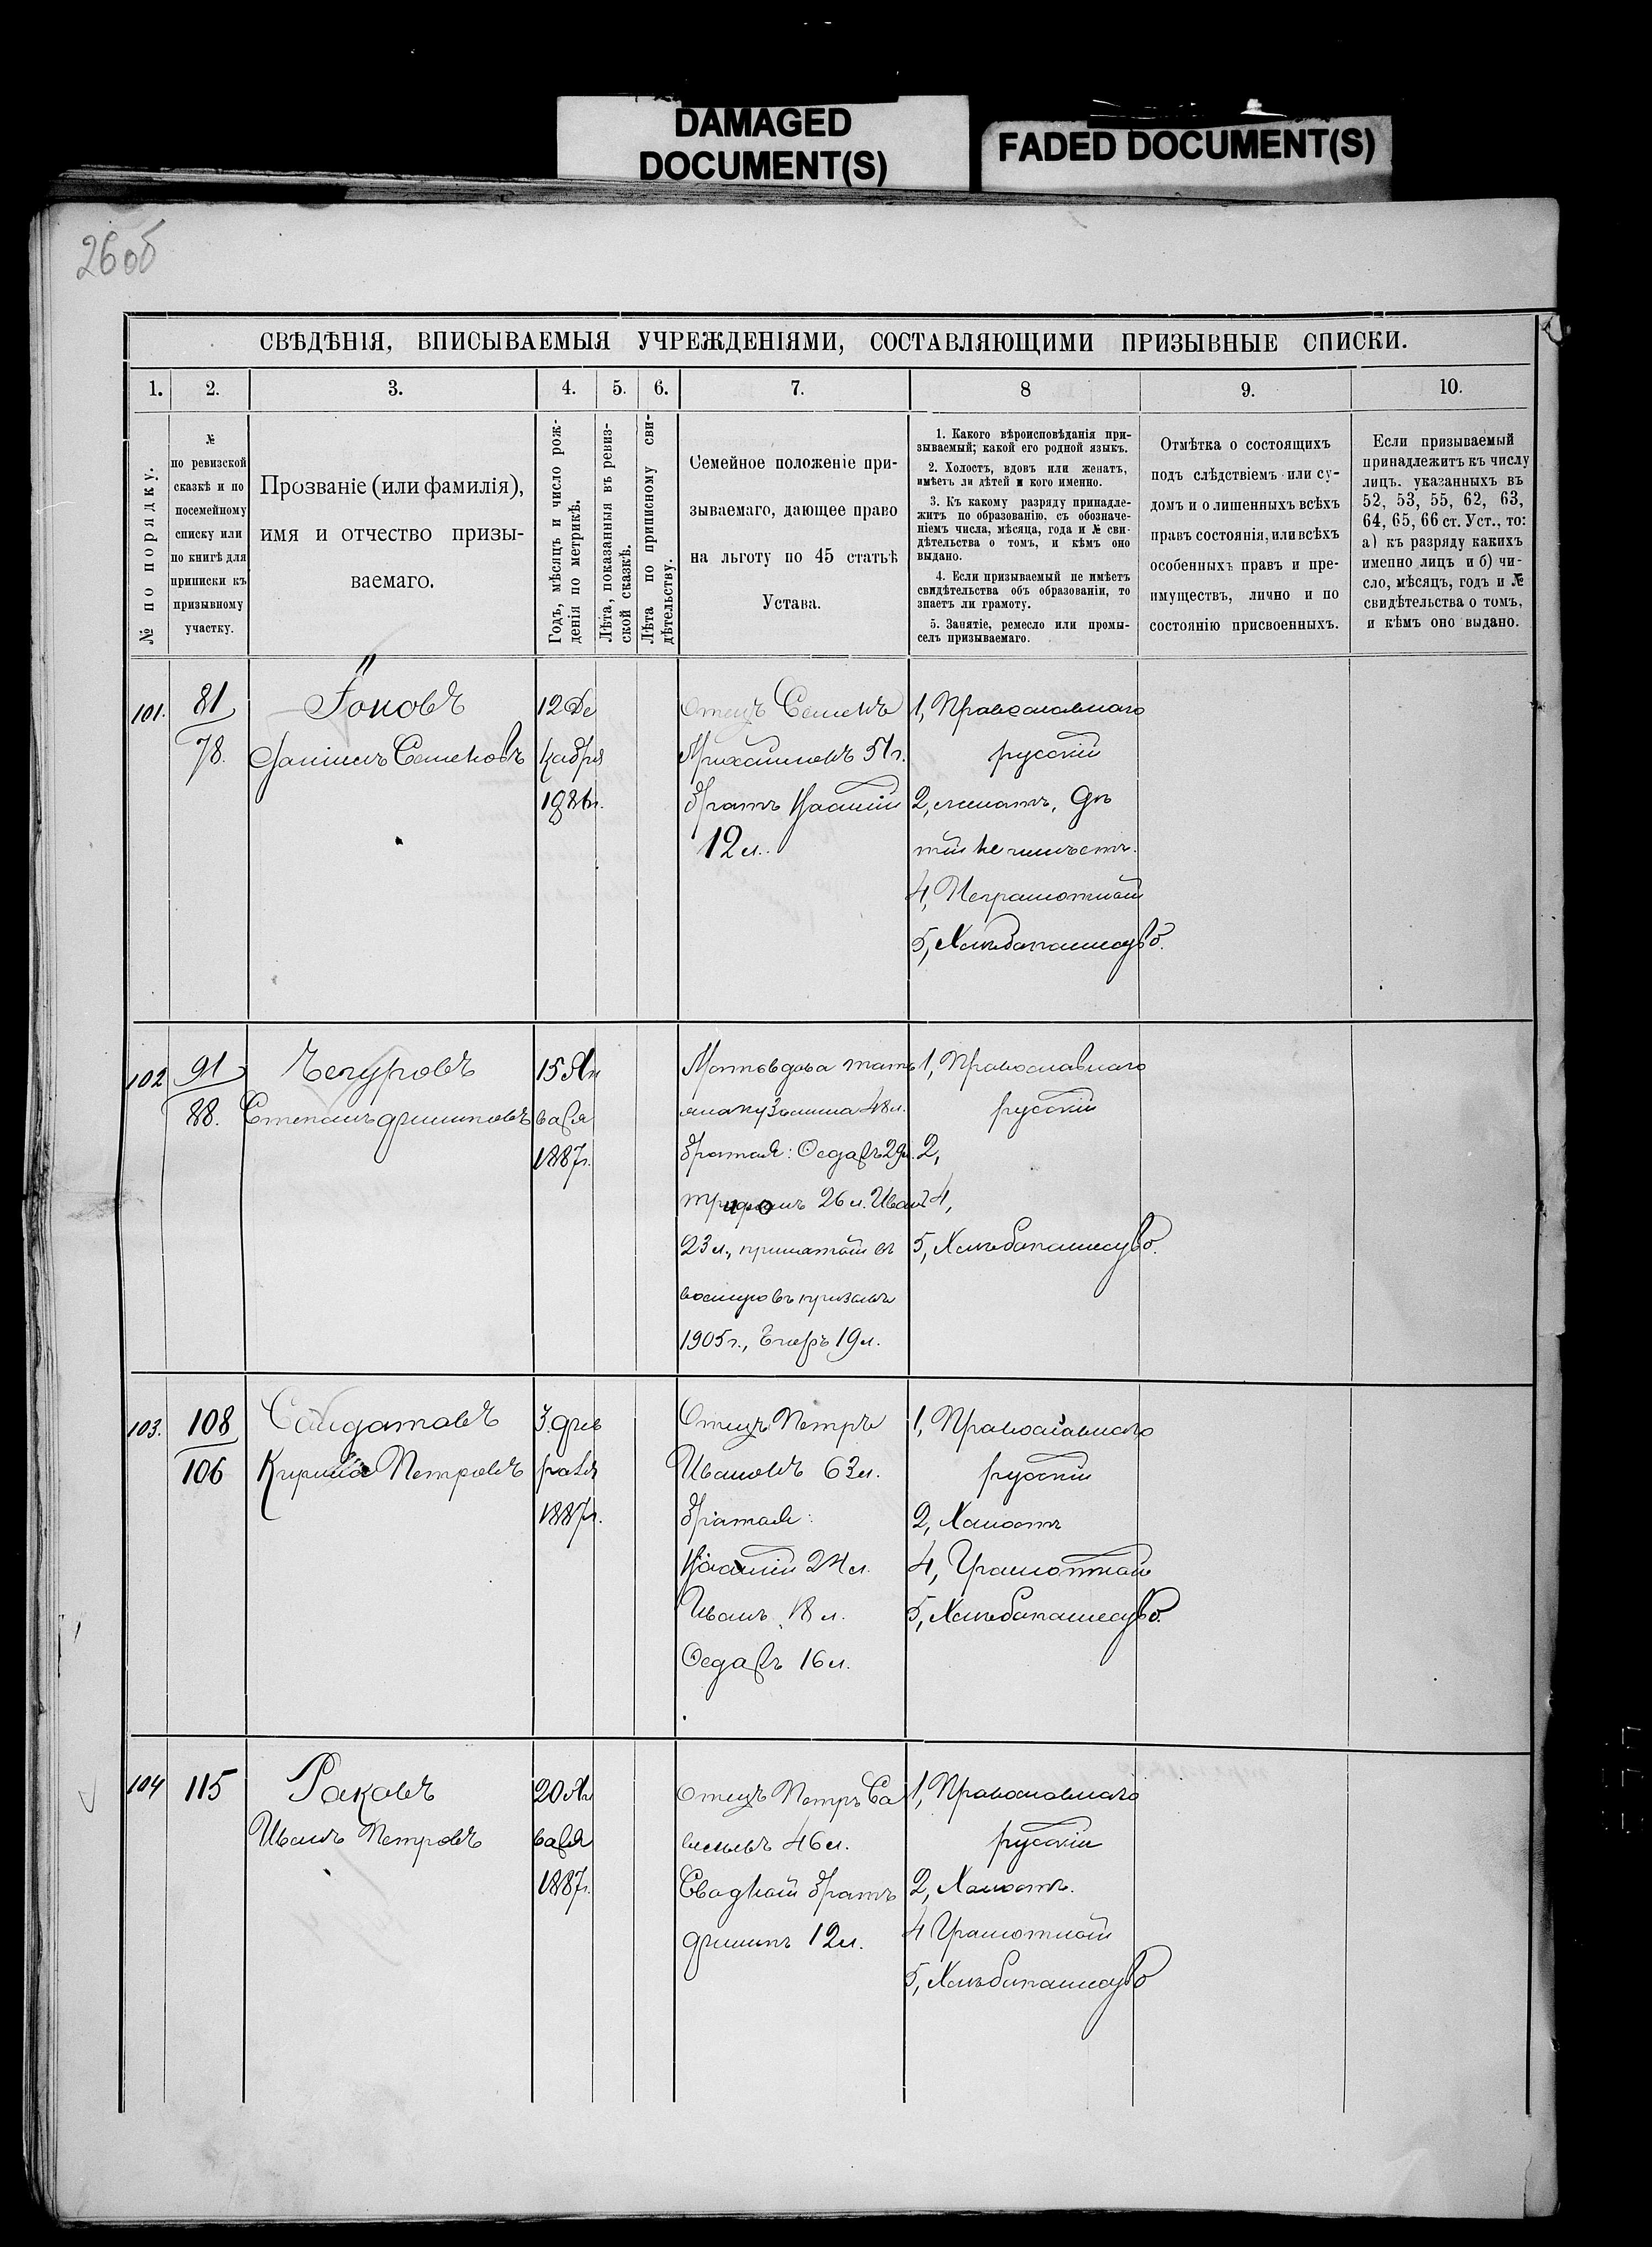 DAMAGED
DOCUMENT(S)
FADED DOCUMENT(S)
26 об
СВѢДѢНІЯ, ВПИСЫВАЕМЫЯ УЧРЕЖДЕНІЯМИ, СОСТАВЛЯЮЩИМИ ПРИЗЫВНЫЕ СПИСКИ.
1. 2. 3. 4. 5. 6. 7. 8 9. 10.
№ по порядку.
№
по ревизской
сказкѣ и по
посемейному
списку или
по книгѣ для
приписки къ
призывному
участку.
Прозваніе (или фамилія),
имя и отчество призы-
ваемаго.
Годъ, мѣсяцъ и число рож-
денія по метрикѣ.
Лѣта, показанныя въ ревиз-
ской сказкѣ.
Лѣта по приписному сви-
дѣтельству.
Семейное положеніе при-
зываемаго, дающее право
на льготу по 45 статьѣ
Устава.
1. Какого вѣроисповѣданія при-
зываемый; какой его родной языкъ.
2. Холостъ, вдовъ или женатъ,
имѣетъ ли дѣтей и кого именно.
3. Къ какому разряду принадле-
житъ по образованію, съ обозначе-
ніемъ числа, мѣсяца, года и № сви-
дѣтельства о томъ, и кѣмъ оно
выдано.
4. Если призываемый не имѣетъ
свидѣтельства объ образованіи, то
знаетъ ли грамоту.
5. Занятіе, ремесло или промы-
селъ призываемаго.
Отмѣтка о состоящихъ
подъ слѣдствіемъ или су-
домъ и о лишенныхъ всѣхъ
правъ состоянія, или всѣхъ
особенныхъ правъ и пре-
имуществъ, лично и по
состоянію присвоенныхъ.
Если призываемый
принадлежитъ къ числу
лицъ, указанныхъ въ
52, 53, 55, 62, 63,
64, 65, 66 ст. Уст., то:
а) къ разряду какихъ
именно лицъ и б) чи-
сло, мѣсяцъ, годъ и №
свидѣтельства о томъ,
и кѣмъ оно выдано.
101.
81
78.
Семеновъ
12 Де
кабря
1886 г.
Отецъ Семенъ
Михайловъ 51 г.
братъ
12 л.
1, Православнаго
русскій
2, женатъ, дѣ
тей не имѣетъ.
4, Неграмотный
5, Хлѣбопашество.
102
91
88.
Чегуровъ
Степанъ Филиповъ
15 Ян
варя
1887 г.
Мать вдова Тать
яна Кузьмина 48 л.
братья: Ѳедоръ 29 л.
Трифонъ 26 л. Иванъ
23 л., принятый въ
военную въ призывъ
1905 г., Егоръ 19 л.
1, Православнаго
русскій
2,
4,
5, Хлѣбопашество.
103.
108
106
Солдатовъ
Кирила Петровъ
3 Фев
раля
1887 г.
Отецъ Петръ
Ивановъ 63 л.
братья:
24 л.
Иванъ 18 л.
Ѳедоръ 16 л.
1, Православнаго
русскій
2, Холостъ
4, Грамотный
5, Хлѣбопашество.
104
115
Раковъ
Иванъ Петровъ
20 Ян
варя
1887 г.
Отецъ Петръ Са
вельевъ 46 л.
Сводный братъ
Филипъ 12 л.
1, Православнаго
русскій
2, Холостъ.
4 Грамотный
5, Хлѣбопашество